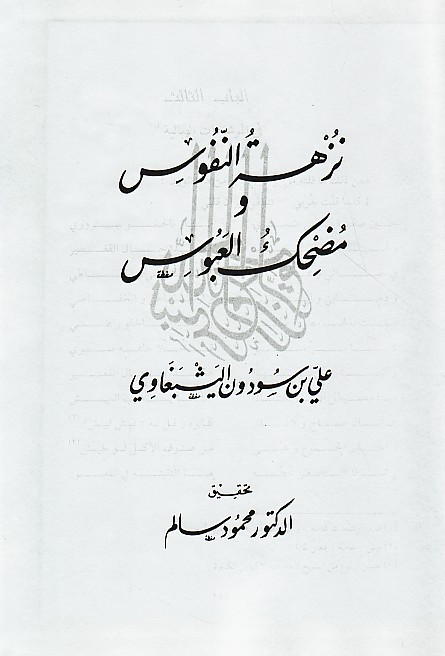 نُزْهَةُ النُّفُوسِ
و
مُضْحِكُ العَبُوسِ
علي بن سودون اليشبغاوي
تحقيق
الدكتور محمود سالم